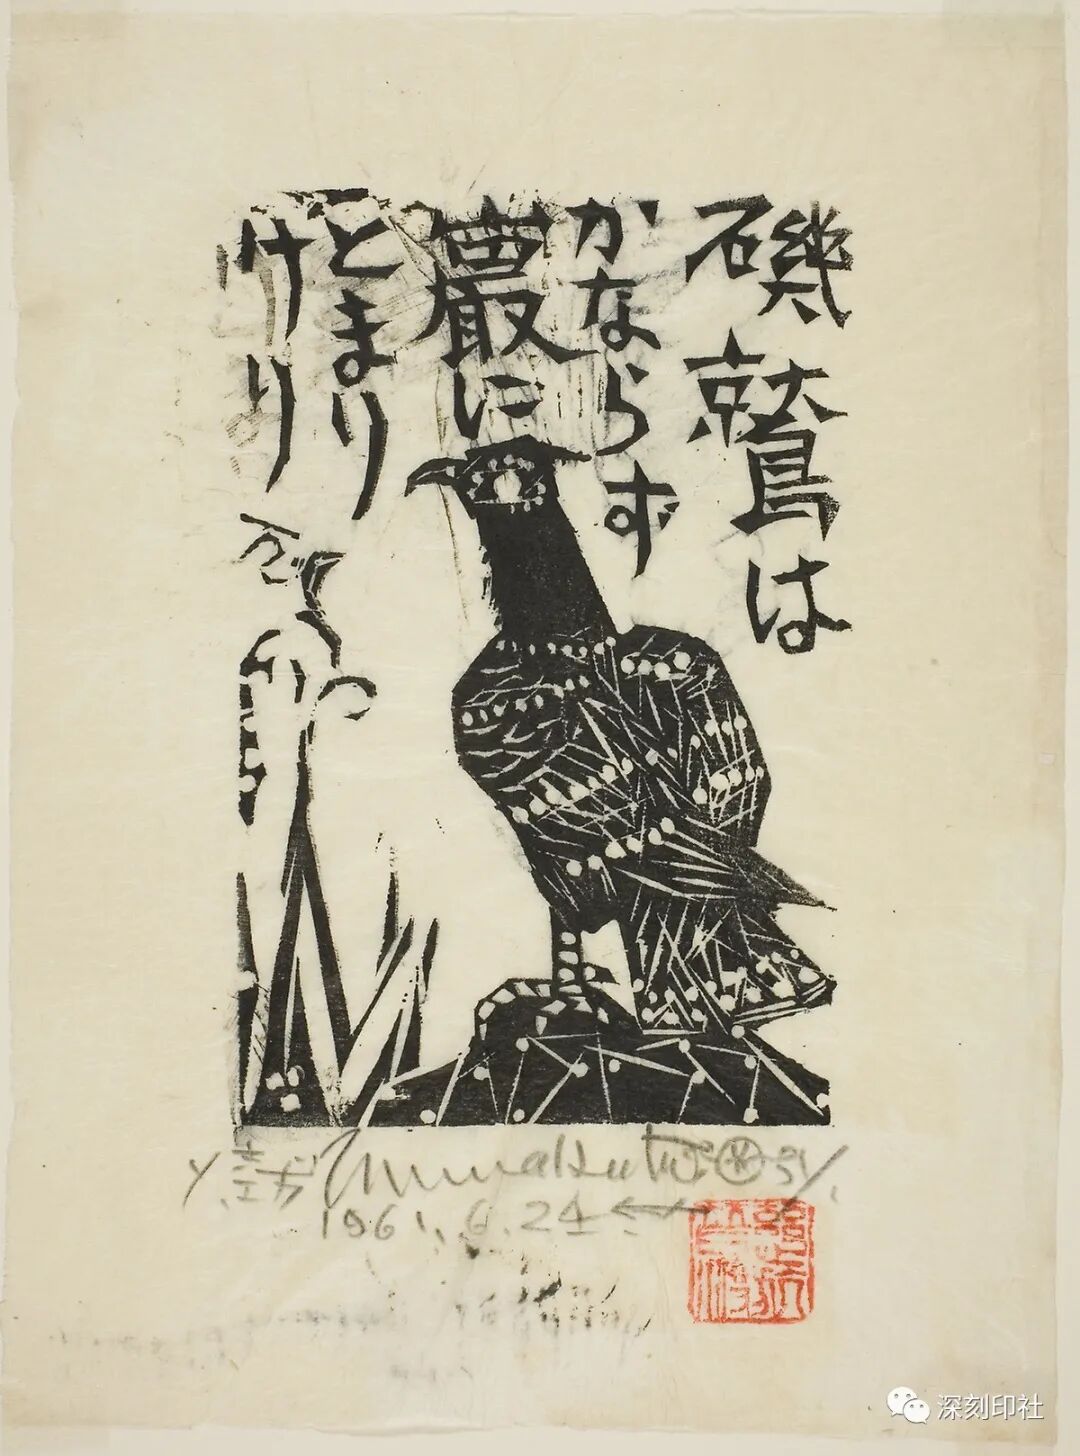 磯鷲は
かならず
巌に
とまり
けり
志功 Munakata
1961. 6. 24
深刻印社